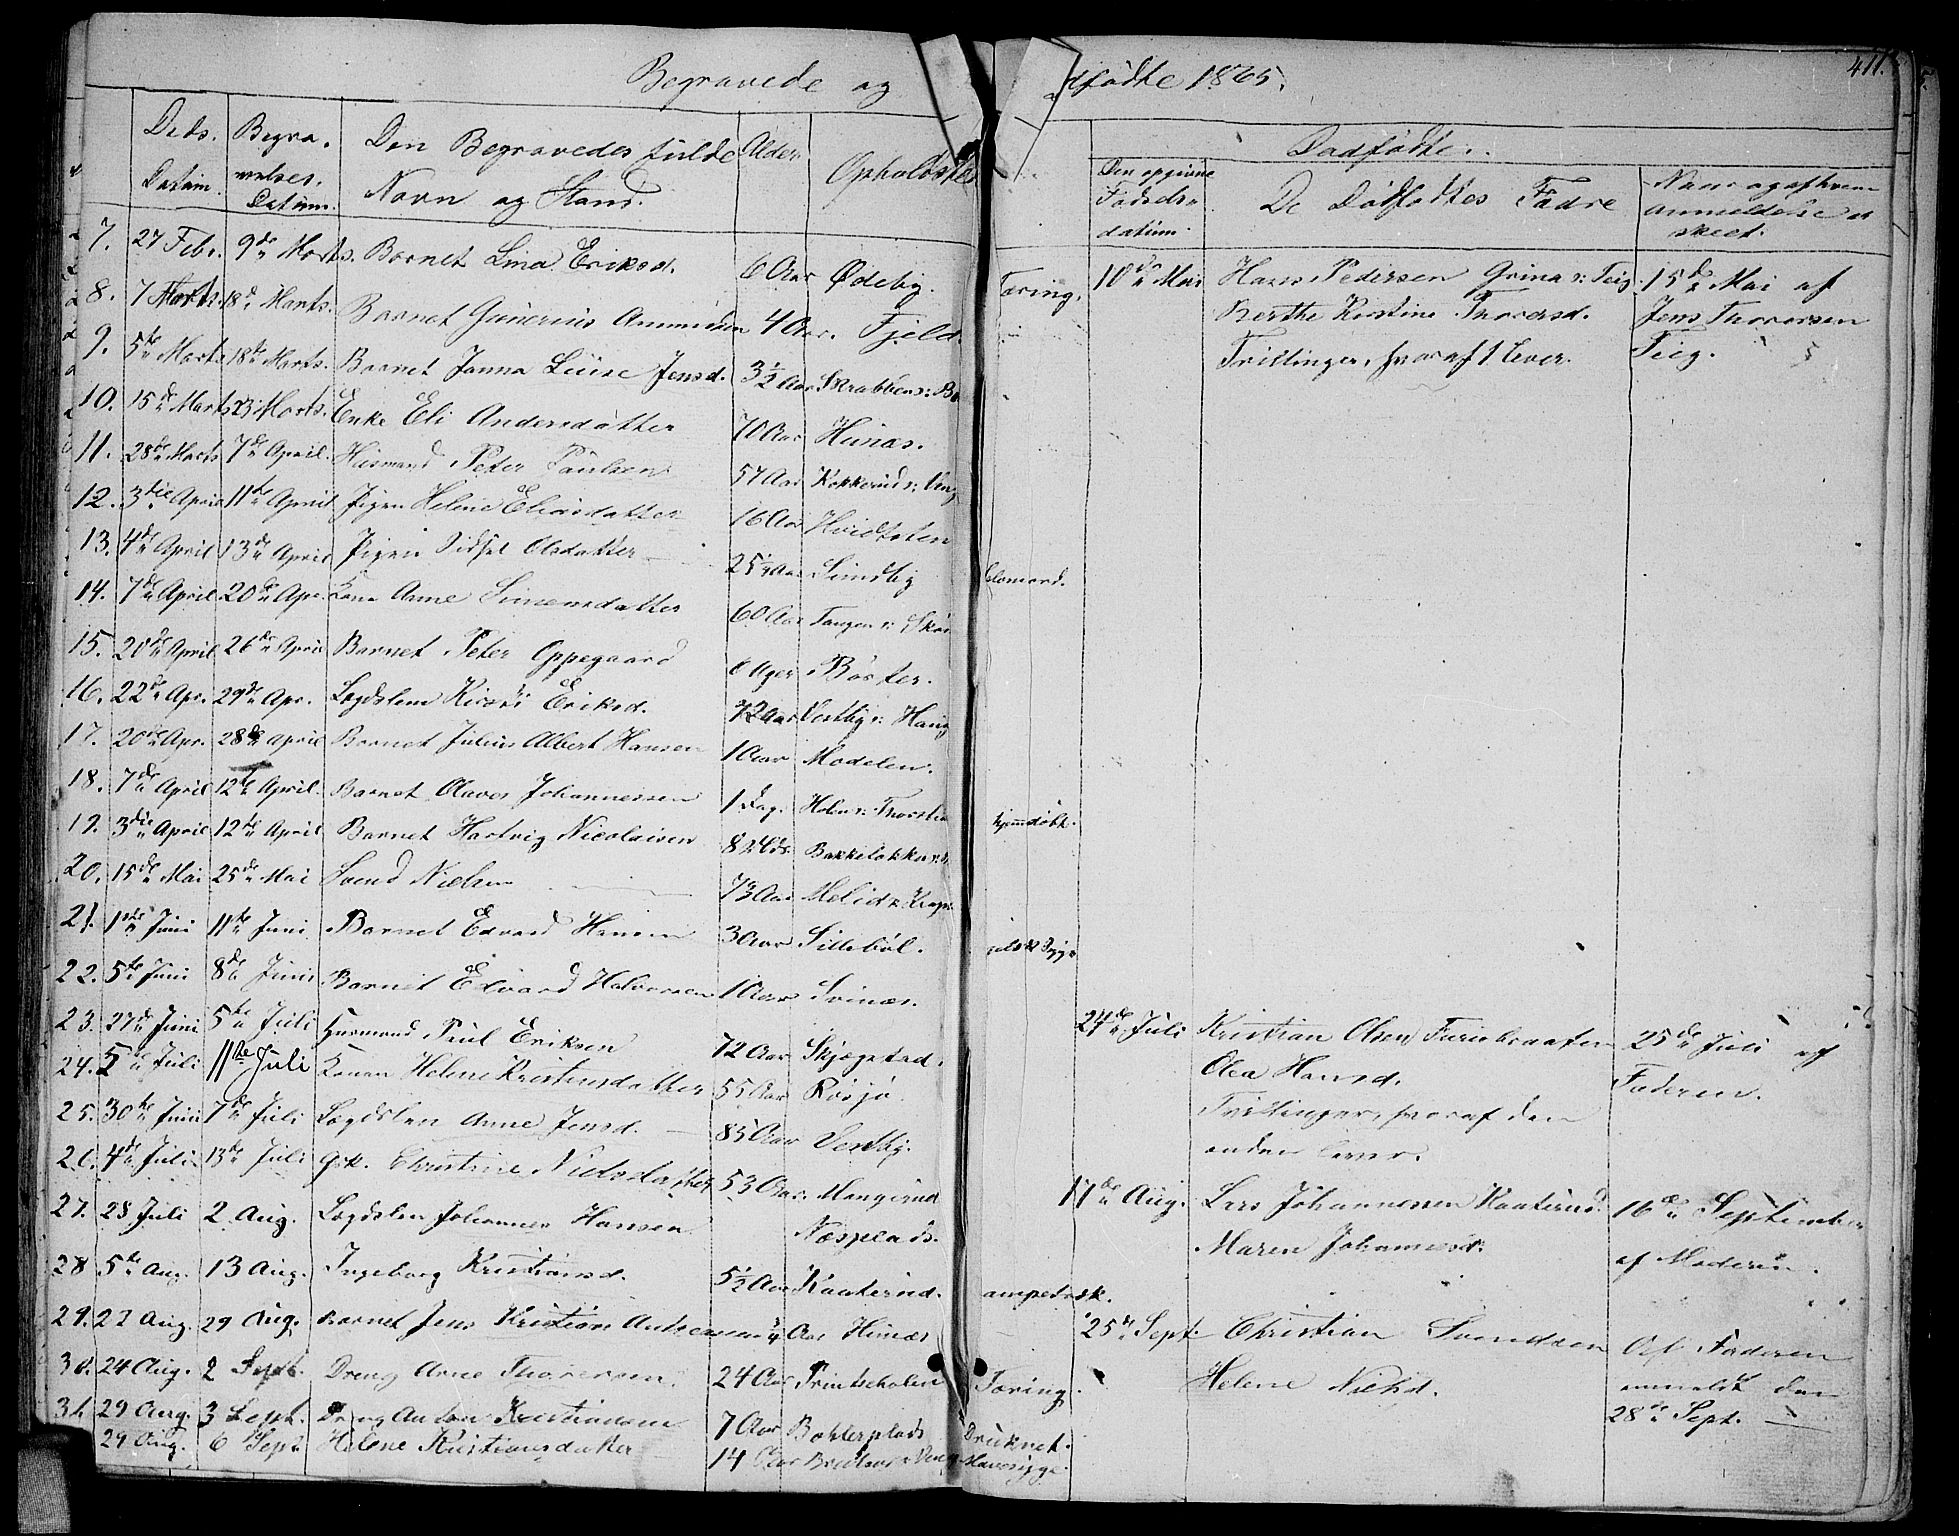 Begravede og dfödte 1865.
411.
Döds. Datum.
Begra- velses. Datum.
Den Begravedes fulde Navn og Stand.
Alder
Opholdsste
Dödfödte.
Den opgivne Fødsels- datum.
De Dödfødtes Fædre
Naar og af hvem anmeldelse er skeet.
7. 27 Febr. 9de Marts. Barnet Lina Eriksd. 6 Aar Ødeby.
8. 7 Marts 18de Marts. Barnet Gunerius Ammundsen 4 Aar. Fjeld.
9. 5te Marts 18de Marts. Barnet Janna Luise Jensd. 3½ Aar Skrabben
10. 15de Marts 23 Marts. Enke Eli Andersdatter 70 Aar Hunæs.
11. 28de Marts 7de April. Husmand Peter Paulsen 57 Aar Kokkerud
12. 3die April 11te April Pigen Helene Eliasdatter 16 Aar Hvidsten
13. 4de April 13de April Pigen Sidsel Olsdatter 25 Aar Sundby
14. 7de April 20de Apr. Kone Anne Simensdatter 60 Aar Tangen
15. 20de April 26de April Barnet Peter Oppegaard Uger Böster.
16. 22de Apr. 29de Apr. Logdslem Kirsti Eriksd. 72 Aar Vestby
17. 20de Apr. 28de April Barnet Julius Albert Hansen 1 Aar Modelen.
18. 7de April 12te April. Barnet Olaves Johannessen 1 Dag.
19. 3die April 12te April Barnet Hartvig Nicolaisen
20. 15de Mai 25de Mai Svend Nielsen 73 Aar
21. 1ste Juni 11te Juni Barnet Edvard Hansen 3 Aar Sillebøl.
22. 5te Juni 8de Juni Barnet Edvard Halvorsen 1 Aar Svinæs.
23. 27de Juni 5te Juli Husmand Paul Eriksen 72 Aar Skjægstad.
24. 5te Juli 11te Juli Konen Helene Kristensdatter 55 Aar Rösjö.
25. 30te Juni 7de Juli Logdslem Anne Jensd. 85 Aar Vestby.
26. 4de Juli 13de Juli Gsk. Christine Nielsdatter 53 Aar. Mangerud
27. 28 Juli 2 Aug. Logdslem Johannes Hansen Næsplads.
28 5te Aug. 13 Aug. Ingeborg Kristiansd. 5½ Aar Kaaterud.
29. 22 Aug. 29 Aug. Barnet Jens Kristian Antonsen ¼ Aar Hunæs
30. 24 Aug. 2 Sept. Dreng Arne Thoresen 24 Aar
31. 29 Aug. 3 Sept. Dreng Anton Kristiansen 7 Aar Bohlerplads
29 Aug. 6 Sept Helene Kristiansdatter 14 Aar
Tæring.
hjemmedöbt.
Tæring.
Druknet.
10de Mai Hans Pedersen Grina v: Teig. 15de Mai af
Berthe Kirstine Thoresd. Jens Thoresen
Tvillinger, hvoraf 1 lever. Teig.
24de Juli Kristian Olsen 25de Juli af
Olea Hansd. Faderen.
Tvillinger, hvoraf den
anden lever.
17de Aug. Lars Johannessen Kaaterud. 16de September
Maren Johannesd. af Moderen.
25de Sept. Christian Svendsen Af Faderen
Helene Nielsd. anmeldt den
28de Sept.